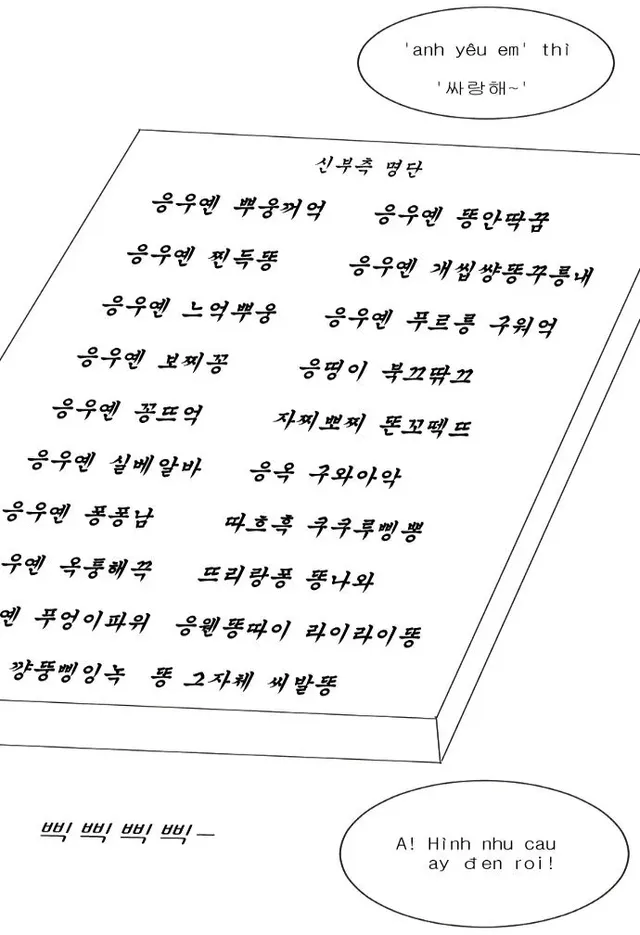 'anh yêu em' thì
'싸랑해~'
신부측 명단
응우옌 뿌웅꺼억 응우옌 똥안딱꿈
응우옌 찐득똥 응우옌 개씹썅똥꾸릉내
응우옌 느억뿌웅 응우옌 푸르릉 구워억
응우옌 보찌꽁 응띵이 북끄딲끄
응우옌 꽁뜨억 자찌뽀찌 똔꼬떽뜨
응우옌 실베알바 응옥 구와아악
응우옌 퐁퐁남 따흐흑 쿠쿠루삥뽕
우옌 옥퉁해꾹 뜨리랑퐁 똥나와
옌 푸엉이파위 응웬똥따이 라이라이똥
꺙뚱삥잉녹 똥 그자체 씨발똥
삑 삑 삑 삑ㅡ
A! Hình nhu cau
ay đen roi!